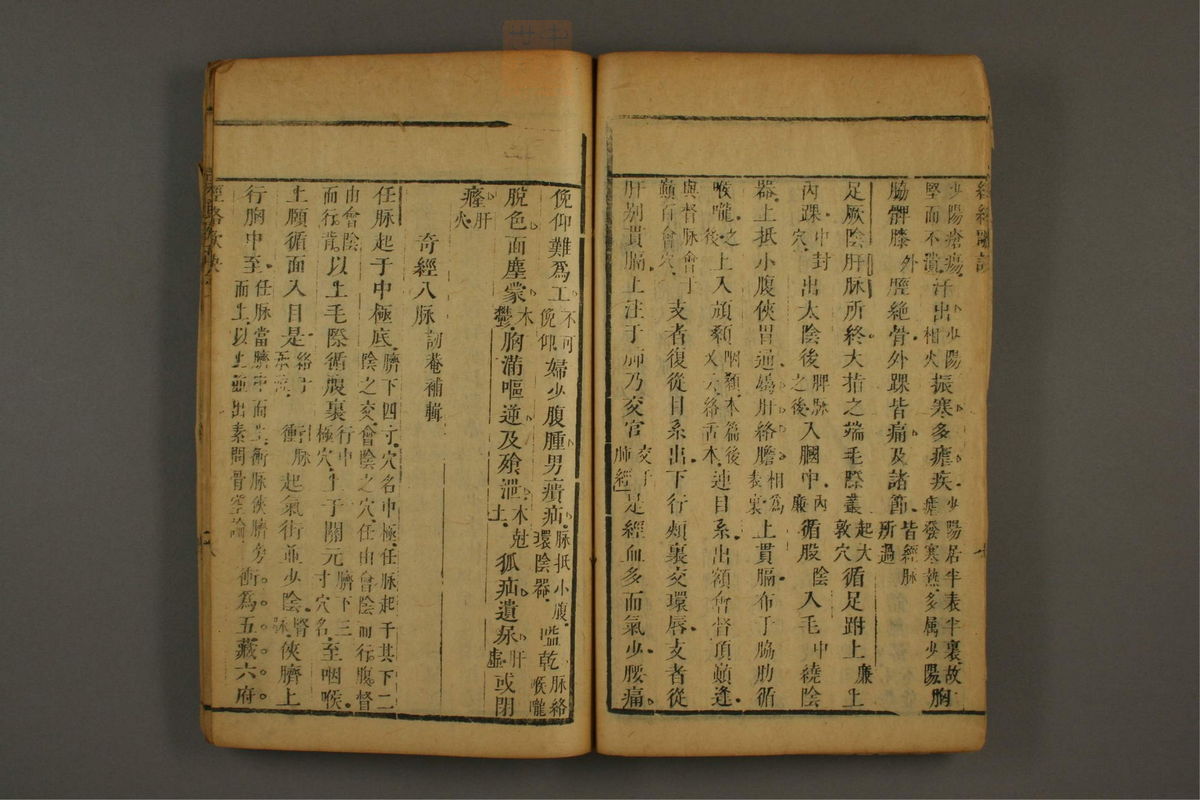 少陽瘡瘍堅而不潰汗出少陽相火振寒多瘧疾少陽居半表半裏故瘧發寒熱多属少陽胸
脇髀膝外脛絶骨外踝皆痛及諸節皆經脉所過
足厥陰肝脉所終大指之端毛際叢起大敦穴循足跗上廉上
內踝中封穴出太陰後脾脉之後入膕中內廉循股陰入毛中繞陰
器上抵小腹俠胃通屬肝絡膽相為表裏上貫膈布于脇肋循
喉嚨之後上入頑顙咽顙本篇後又云絡舌本連目系出額會督頂巔逢
與督脉會于巔百會穴支者復從目系出下行頰裏交環唇支者從
肝别貫膈上注于肺乃交宫交于肺經是經血多而氣少腰痛
俛仰難為工不可俛仰婦少腹腫男㿉疝脉抵小腹環陰器嗌乾脉絡喉嚨
脫色面塵蒙木鬱胸滿嘔逆及飱泄木尅土狐疝遺尿肝虛或閉
癃肝火
奇經八脉訒菴補輯
任脉起于中極底臍下四寸穴名中極任脉起于其下二陰之交會陰之穴任由會陰而行腹督
由會陰而行背以上毛際循腹裏行中極穴上于關元臍下三寸穴名至咽喉
上頤循面入目是絡于承泣衝脉起氣街並少陰腎脉俠臍上
行胸中至任脉當臍中而上衝脉俠臍旁而上以上並出素問骨空論衝為五藏六府
經絡歌訣